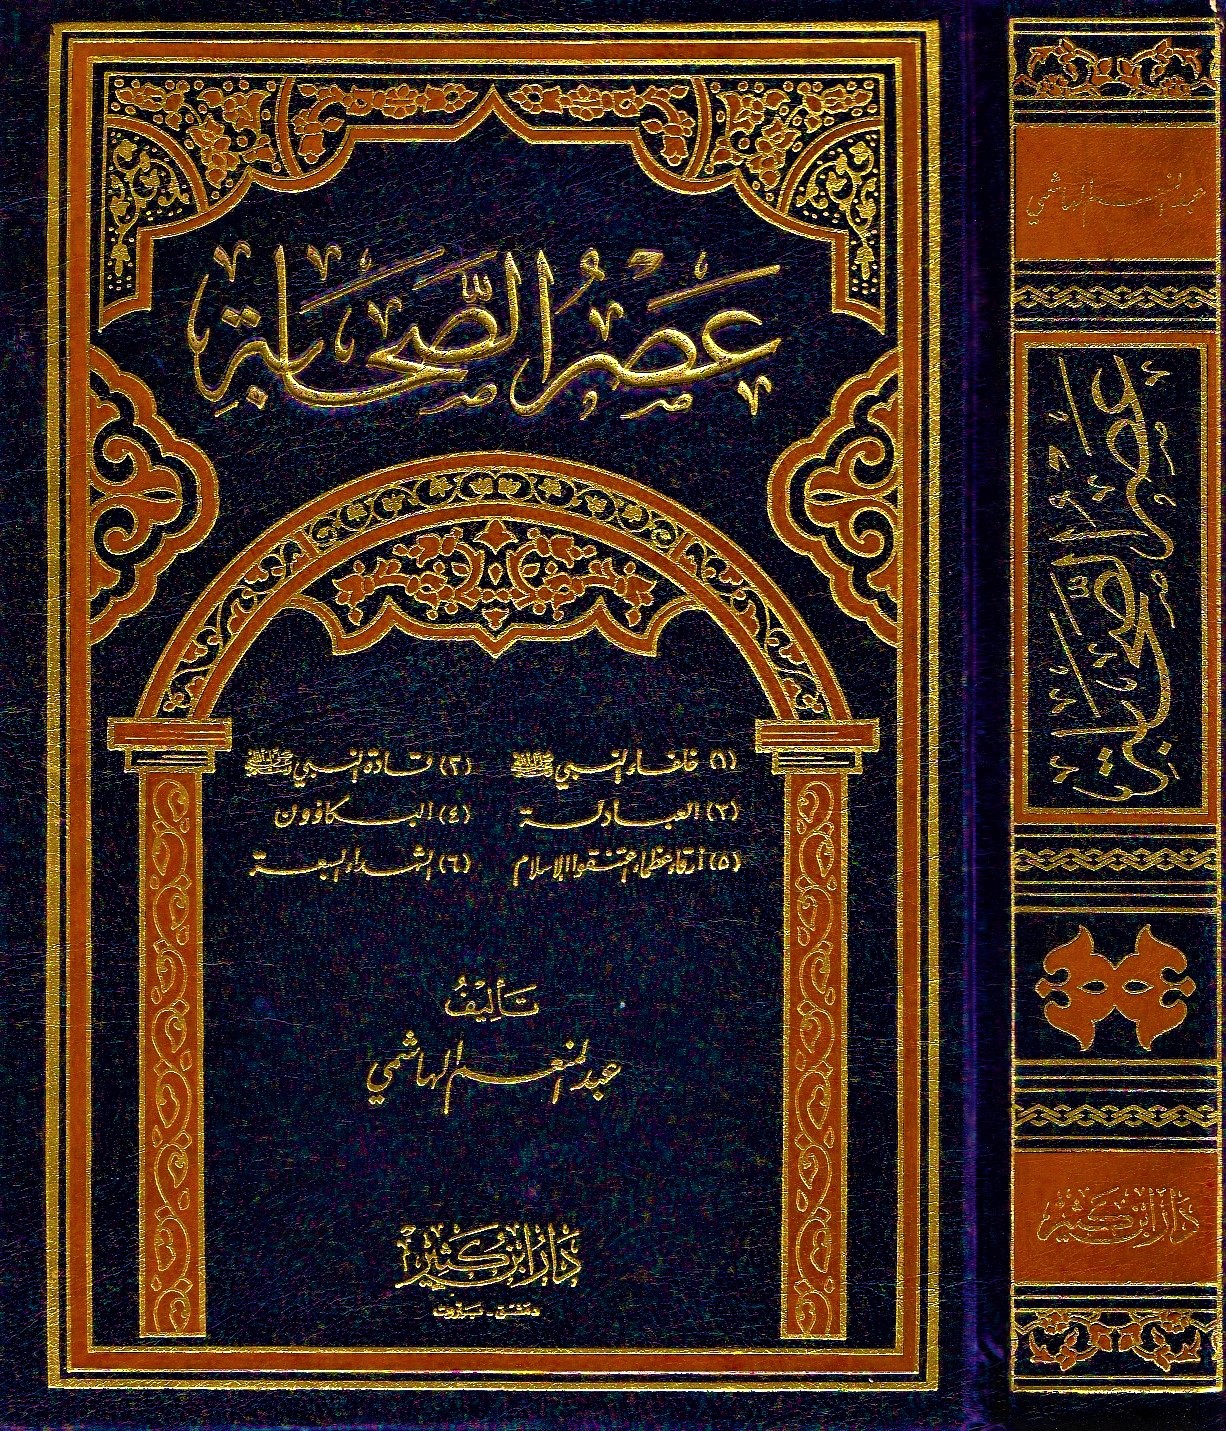 عَصْرُ الصَّحَابَةِ
(١) خلفاء النبي ﷺ (٢) قادة النبي ﷺ
(٣) العبادلة (٤) البكاؤون
(٥) أرقاء عظماء اعتنقوا الإسلام (٦) الشهداء السبعة
تَأليْفُ
عبد المنعم الهاشمي
دَارُ ابْن كَثِيْر
دمَشق - بَيْروت
عبد المنعم الهاشمي
عَصْرُ الصَّحَابَةِ
دَارُ ابْن كَثِيْر